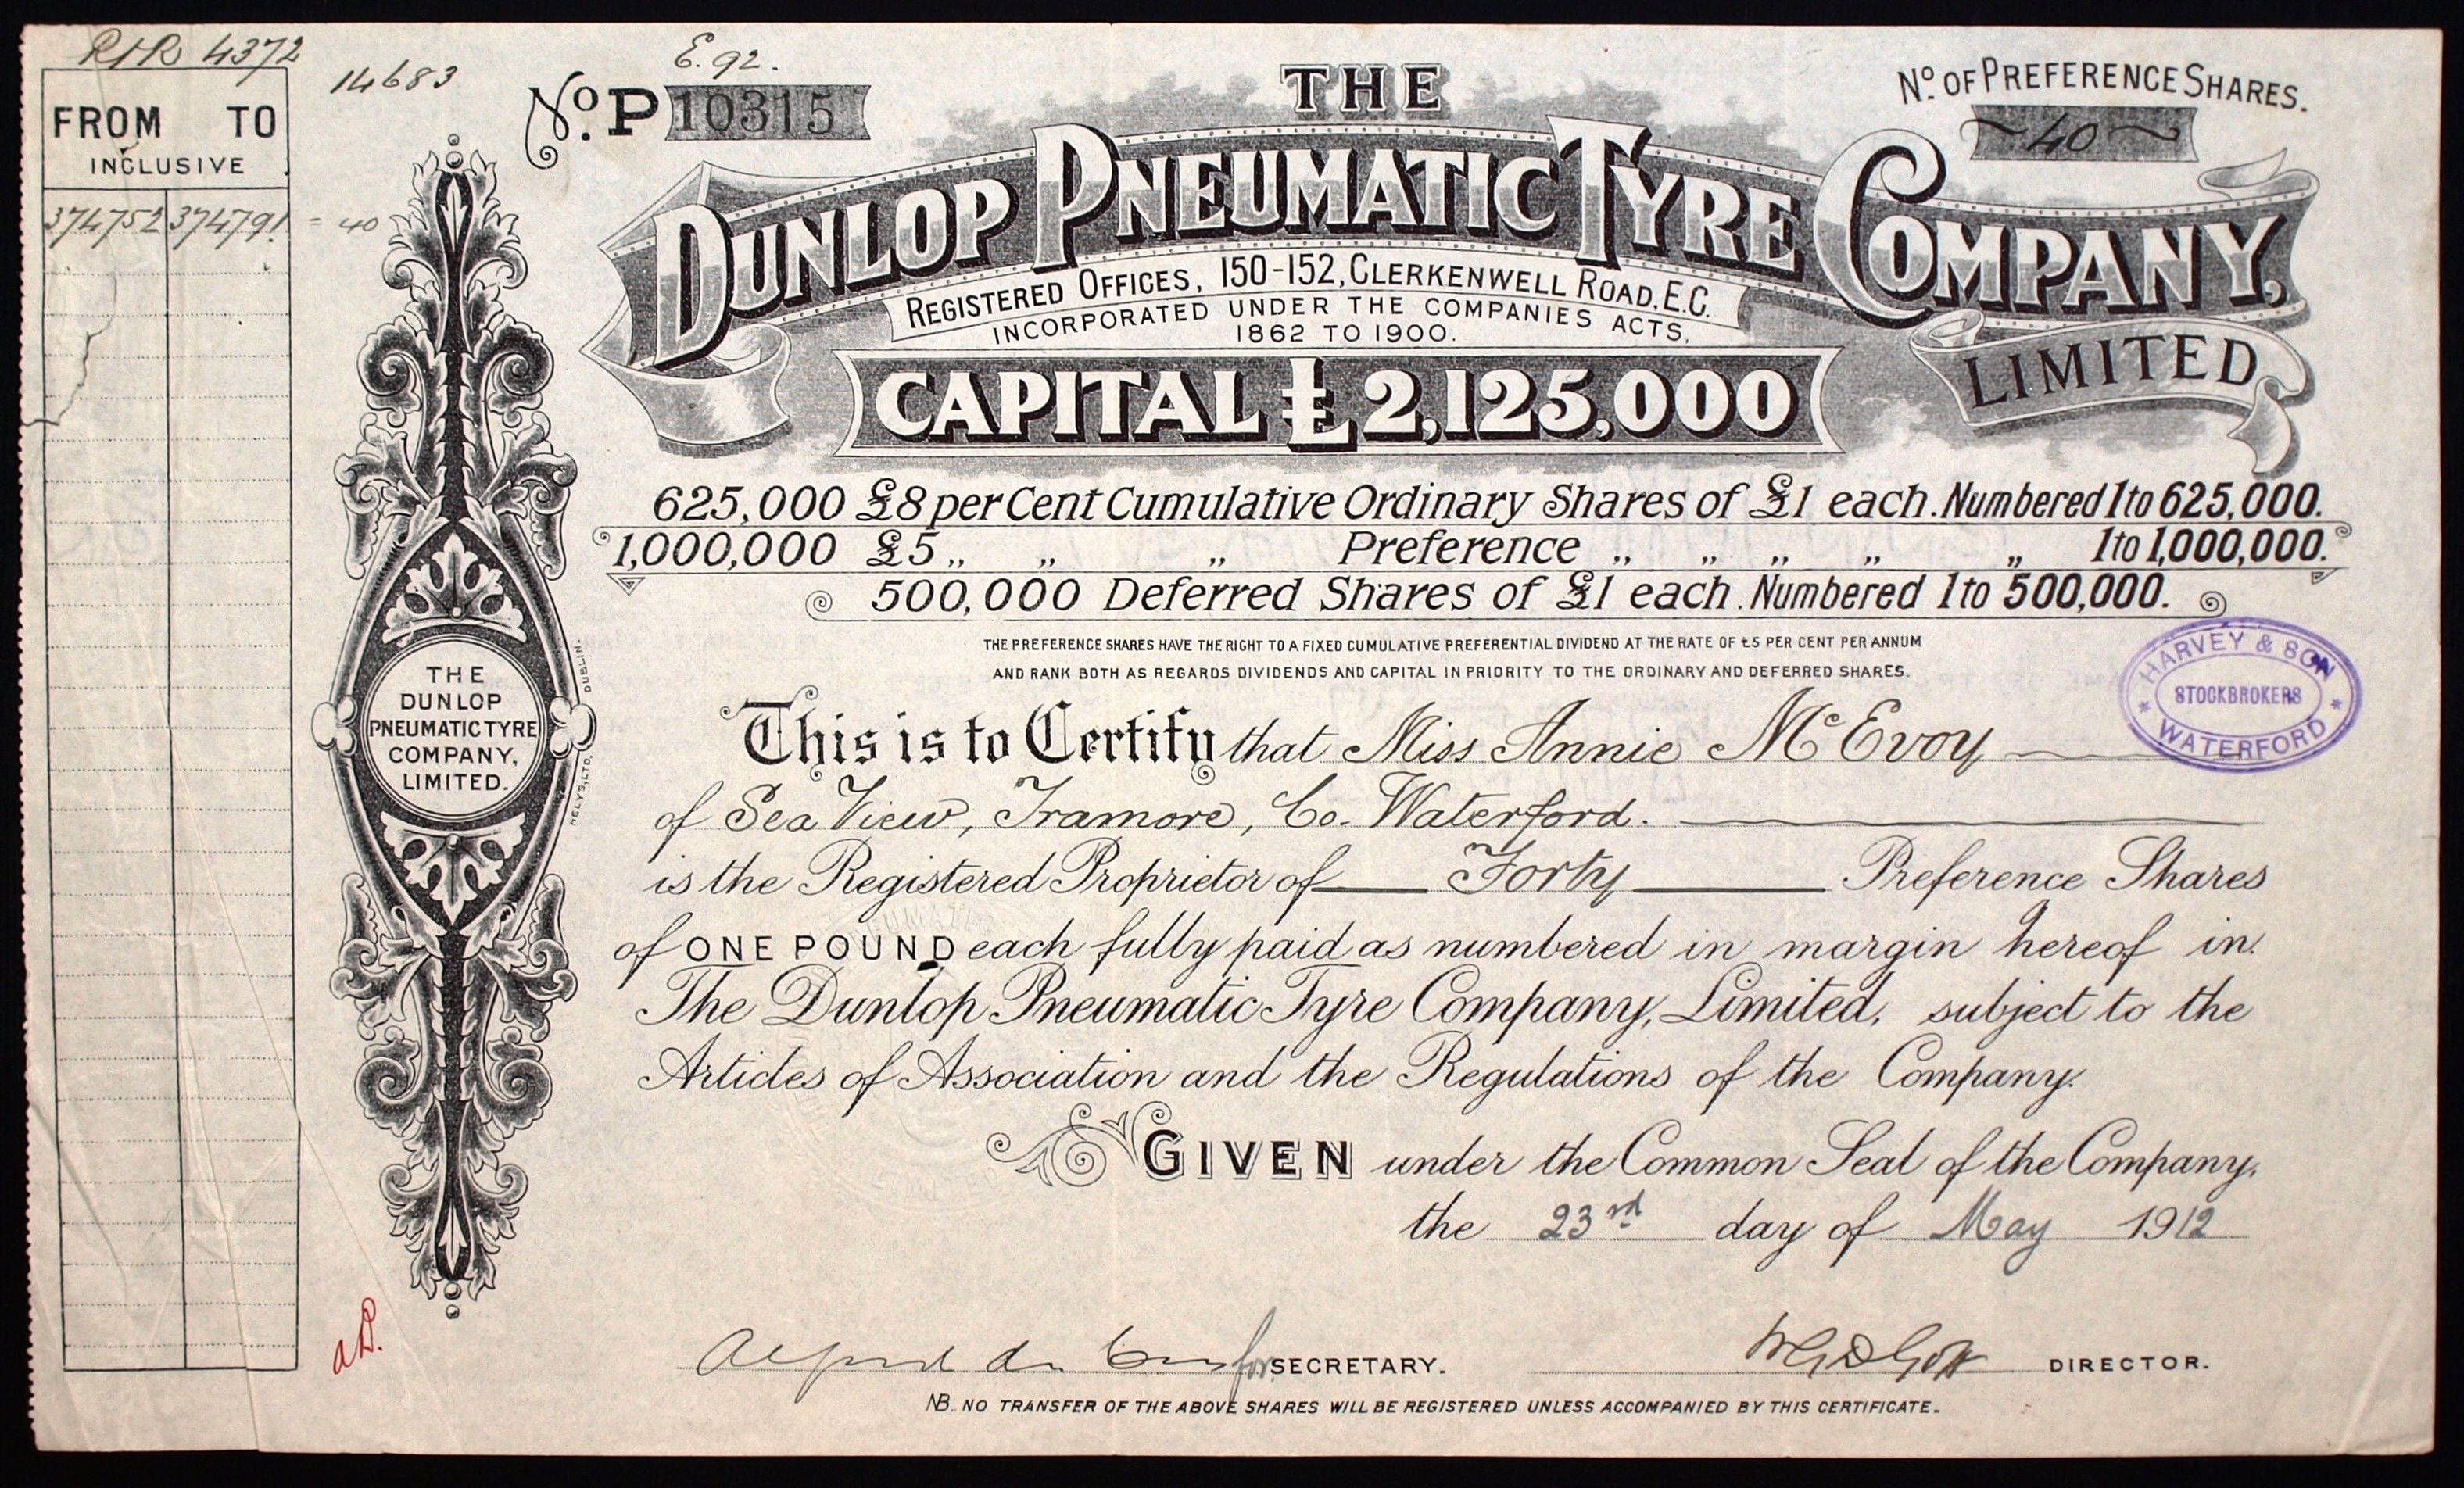 R/R 4372
14683
E. 92.
FROM TO
INCLUSIVE
374752 374791 = 40
No. P 10315
No. OF PREFERENCE SHARES.
~ 40 ~
THE
DUNLOP PNEUMATIC TYRE COMPANY,
LIMITED
REGISTERED OFFICES, 150-152, CLERKENWELL ROAD, E.C.
INCORPORATED UNDER THE COMPANIES ACTS,
1862 TO 1900.
CAPITAL £2,125,000
625,000 £8 per Cent Cumulative Ordinary Shares of £1 each. Numbered 1 to 625,000.
1,000,000 £5 „ „ „ Preference „ „ „ „ „ 1 to 1,000,000.
500,000 Deferred Shares of £1 each. Numbered 1 to 500,000.
THE PREFERENCE SHARES HAVE THE RIGHT TO A FIXED CUMULATIVE PREFERENTIAL DIVIDEND AT THE RATE OF £5 PER CENT PER ANNUM
AND RANK BOTH AS REGARDS DIVIDENDS AND CAPITAL IN PRIORITY TO THE ORDINARY AND DEFERRED SHARES.
HARVEY & SON
STOCKBROKERS
* WATERFORD *
THE
DUNLOP
PNEUMATIC TYRE
COMPANY,
LIMITED.
HELYS, LTD, DUBLIN.
This is to Certify that Miss Annie McEvoy
of Sea View, Tramore, Co. Waterford.
is the Registered Proprietor of Forty Preference Shares
of ONE POUND each fully paid as numbered in margin hereof in
The Dunlop Pneumatic Tyre Company, Limited, subject to the
Articles of Association and the Regulations of the Company.
GIVEN under the Common Seal of the Company,
the 23rd day of May 1912
a.D.
Alfred du for SECRETARY.
DIRECTOR.
NB. NO TRANSFER OF THE ABOVE SHARES WILL BE REGISTERED UNLESS ACCOMPANIED BY THIS CERTIFICATE.